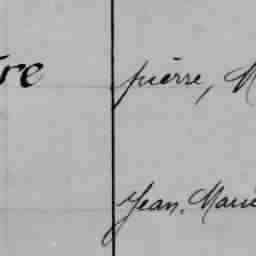 pierre,
Jean. Marie